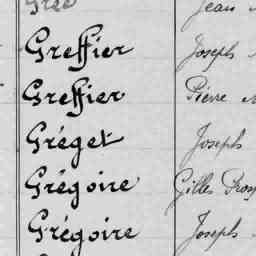 Jean
Greffier Joseph
Greffier Pierre
Gréget Joseph
Grégoire Gilles Prosp
Grégoire Joseph